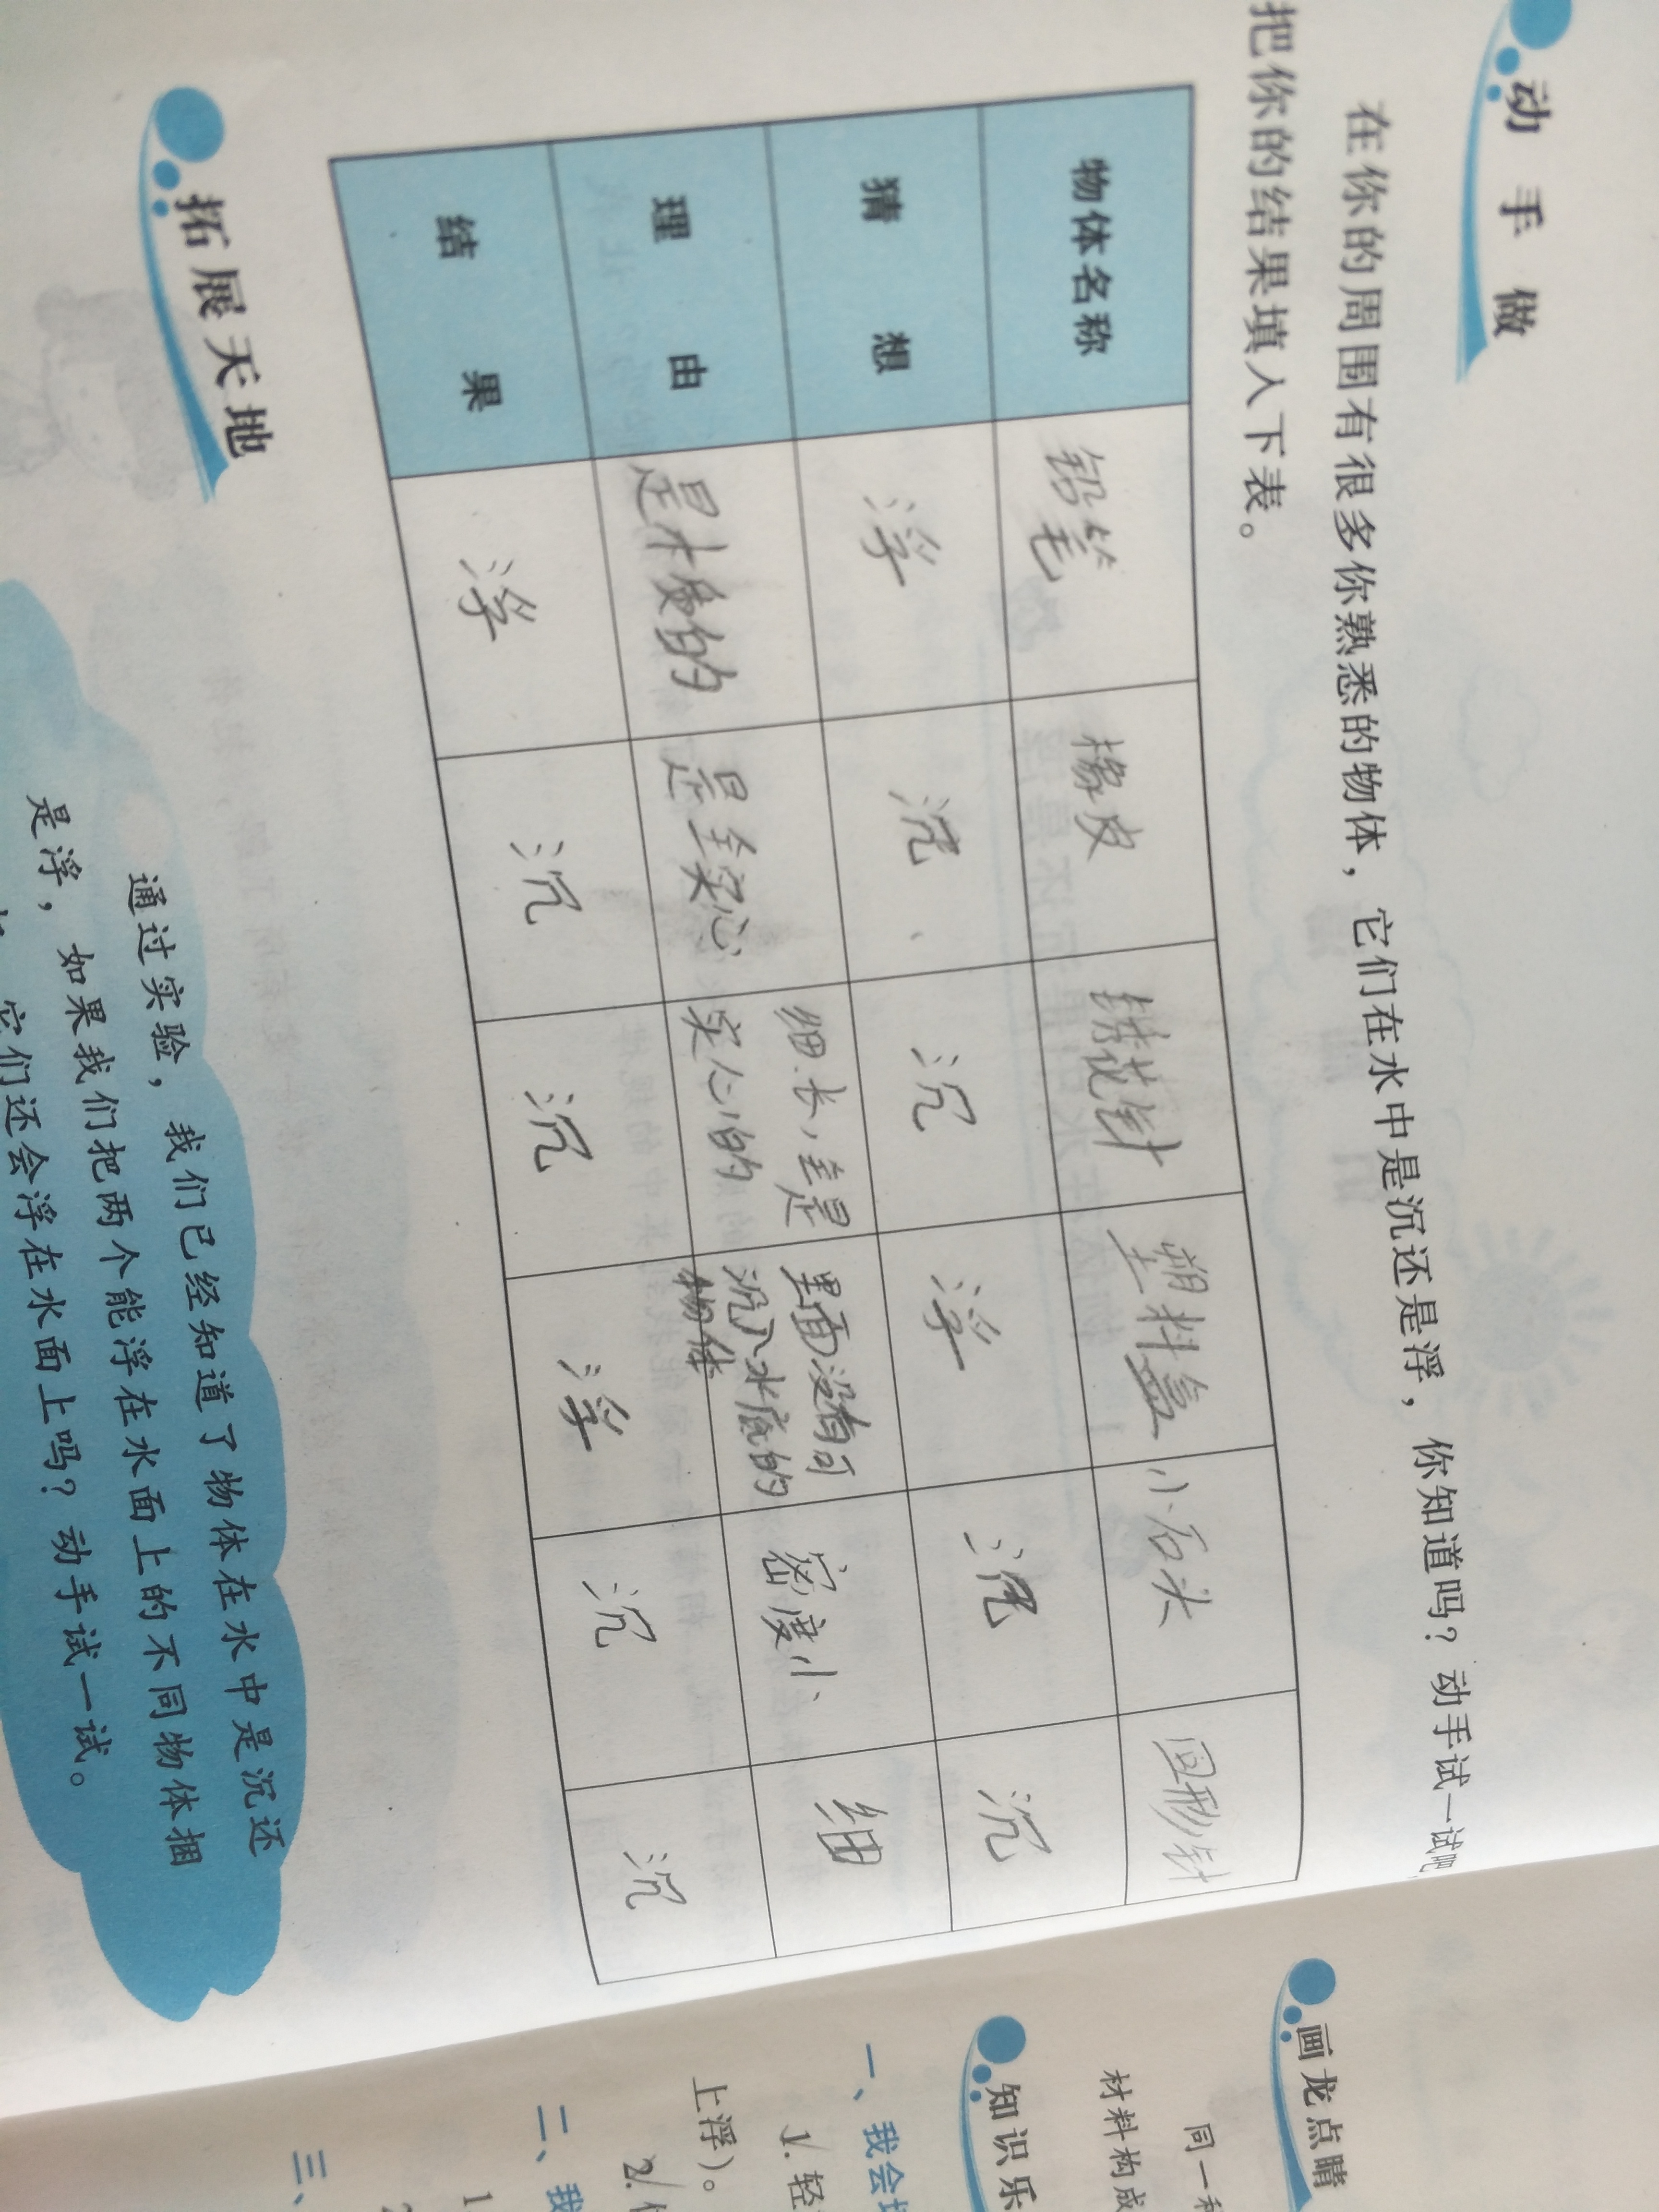 动手做
在你的周围有很多你熟悉的物体，它们在水中是沉还是浮，你知道吗？动手试一试吧
把你的结果填入下表。
物体名称 铅笔 橡皮 绣花针 塑料盒 小石头 回形针
猜想 浮 沉 沉 浮 沉 沉
理由 是木质的 是全实心 细长，全是 里面没有可 密度小 细
实心的 沉入水底的
物体
结果 浮 沉 沉 浮 沉 沉
拓展天地
通过实验，我们已经知道了物体在水中是沉还
是浮，如果我们把两个能浮在水面上的不同物体捆
它们还会浮在水面上吗？动手试一试。
画龙点睛
同一种
材料构成
知识乐
一、我会
1.轻
上浮）。
2.
二、我
1
2
三、